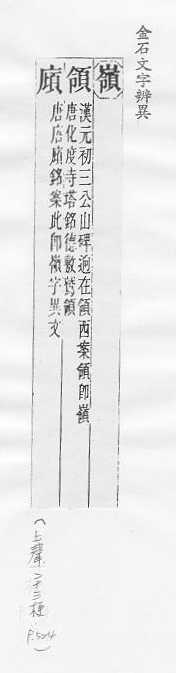 金石文字辨異
嶺
領
廎
漢元初三公山碑逈在領西案領即嶺
唐化度寺塔銘德敷鷲領
唐廎銘案此即嶺字異文
(上聲 二十三梗 P.524)